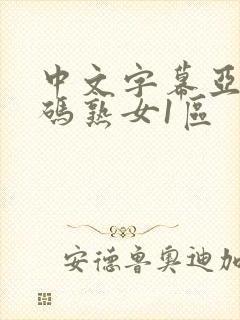 中文字幕亞
碼熟女1區
安德魯奧迪加